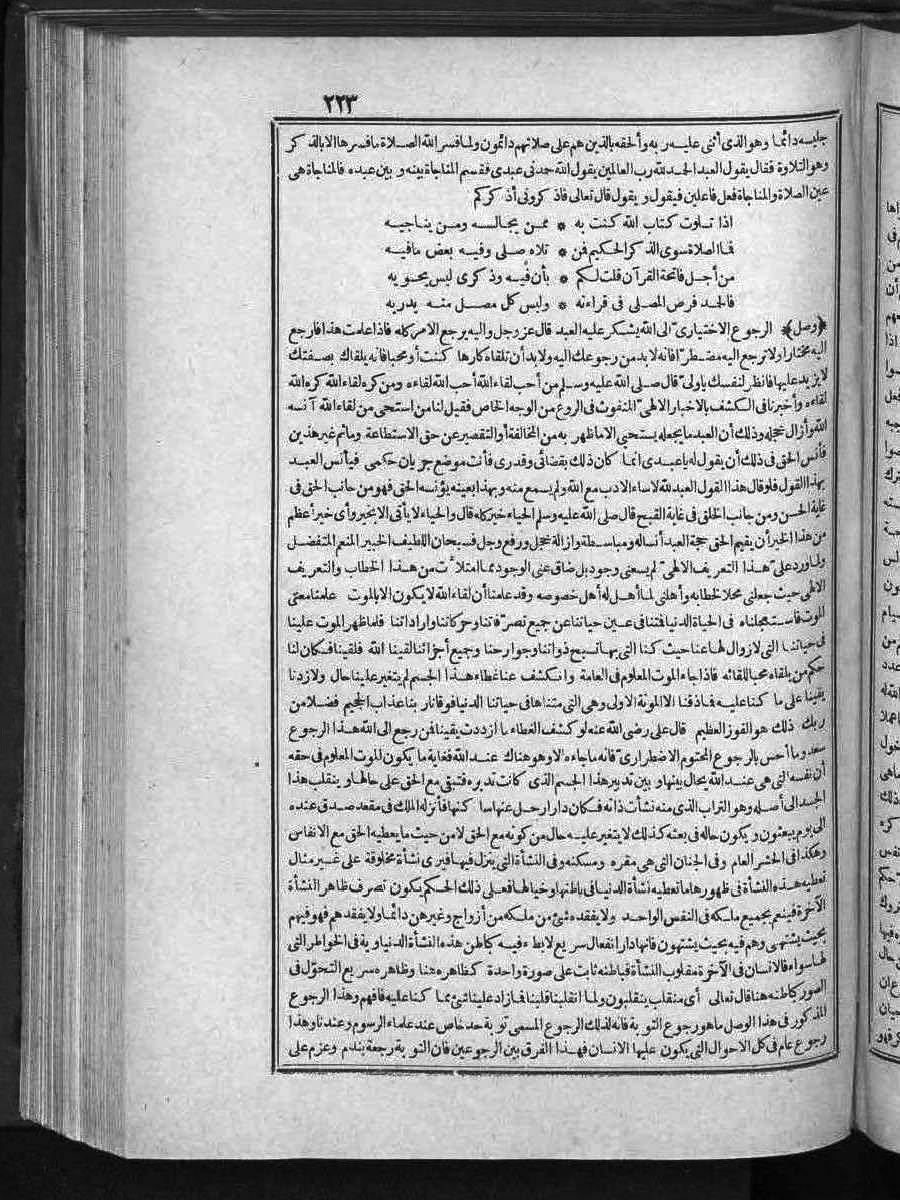 ٢٢٣
جليسه دائما وهو الذى أثنى عليه ربه وألحقه بالذين هم على صلاتهم دائمون ولما فسر الله الصلاة مافسرها الا بالذكر
وهو التلاوة فقال يقول العبد الحمد لله رب العالمين يقول الله حمدنى عبدى فقسم المناجاة بينه وبين عبده فالمناجاة هى
عين الصلاة والمناجاة فعل فاعلين فيقول ويقول قال تعالى فاذكرونى أذكركم
اذا تلوت كتاب الله كنت به * ممن يجالسه ومن يناجيه
فما الصلاة سوى الذكر الحكيم فن * تلاه صلى وفيه بعض مافيه
من أجل فاتحة القرآن قلت لكم * بأن فيه وذكرى ليس يحويه
فالحمد فرض المصلى فى قراءته * وليس كل مصل منه يدريه
﴿وصل﴾ الرجوع الاختيارى الى الله يشكر عليه العبد قال عز وجل واليه يرجع الامر كله فاذا علمت هذا فارجع
اليه مختارا ولا ترجع اليه مضطرا فانه لابد من رجوعك اليه ولابد أن تلقاه كارها كنت أو محبا فانه يلقاك بصفتك
لا يزيد عليها فانظر لنفسك ياولى قال صلى الله عليه وسلم من أحب لقاء الله أحب الله لقاءه ومن كره لقاء الله كره الله
لقاءه وأخبرنا فى الكشف بالاخبار الالهى المنفوث فى الروع من الوجه الخاص فقيل لنا من استحى من لقاء الله آنسه
الله وأزال خجله وذلك أن العبد مايجعله يستحى الا ماظهر به من المخالفة أو التقصير عن حق الاستطاعة وماثم غير هذين
فأنس الحق فى ذلك أن يقول له ياعبدى انما كان ذلك بقضائى وقدرى فأنت موضع جريان حكمى فيأنس العبد
بهذا القول فلوقال هذا القول العبد لله لاساء الادب مع الله ولم يسمع منه وبهذا بعينه يؤنسه الحق فهو من جانب الحق فى
غاية الحسن ومن جانب الخلق فى غاية القبح قال صلى الله عليه وسلم الحياء خير كله قال والحياء لا يأتى الا بخير وأى خير أعظم
من هذا الخير أن يقيم الحق حجة العبد أنسا له ومباسطة وازالة خجل ورفع وجل فسبحان اللطيف الخبير المنعم المتفضل
ولما ورد على هذا التعريف الالهى لم يسعنى وجود بل ضاق عنى الوجود مما امتلأت من هذا الخطاب والتعريف
الالهى حيث جعلنى محلا لخطابه وأهلنى لما أهل له أهل خصوصه وقد علمنا أن لقاء الله لا يكون الا بالموت علمنا معنى
الموت فاستعجلناه فى الحياة الدنيا فتنا فى عين حياتنا عن جميع تصرفاتنا وحركاتنا واراداتنا فلما ظهر الموت علينا
فى حياتنا التى لا زوال لها عنا حيث كنا التى بها تسبح ذواتنا وجوارحنا وجميع أجزائنا لقينا الله فلقينا فكان لنا
حكم من يلقاه محبا للقائه فاذا جاء الموت المعلوم فى العامة وانكشف عنا غطاء هذا الجسم لم يتغير علينا حال ولا زدنا
يقينا على ما كنا عليه فما ذقنا الا الموتة الاولى وهى التى متناها فى حياتنا الدنيا فوقانا ربنا عذاب الجحيم فضلا من
ربك ذلك هو الفوز العظيم قال على رضى الله عنه لو كشف الغطاء ما ازددت يقينا فن رجع الى الله هذا الرجوع
سعد وما أحس بالرجوع المحتوم الاضطرارى فانه ماجاءه الا وهو هناك عند الله فغاية ما يكون الموت المعلوم فى حقه
أن نفسه التى هى عند الله يحال بينها وبين تدبير هذا الجسم الذى كانت تدبره فتبقى مع الحق على حالها وينقلب هذا
الجسد الى أصله وهو التراب الذى منه نشأت ذاته فكان دارا رحل عنها ساكنها فأنزله الملك فى مقعد صدق عنده
الى يوم يبعثون ويكون حاله فى بعثه كذلك لا يتغير عليه حال من كونه مع الحق لا من حيث مايعطيه الحق مع الانفاس
وهكذا فى الحشر العام وفى الجنان التى هى مقره ومسكنه وفى النشأة التى ينزل فيها فيرى نشأة مخلوقة على غير مثال
تعطيه هذه النشأة فى ظهورها ماتعطيه نشأة الدنيا فى باطنها وخيالها فعلى ذلك الحكم يكون تصرف ظاهر النشأة
الآخرة فينعم بجميع ملكه فى النفس الواحد ولا يفقده شئ من ملكه من أزواج وغيرهن دائما ولا يفقدهم فهو فيهم
بحيث يشتهى وهم فيه بحيث يشتهون فانها دار انفعال سريع لا بطء فيه كباطن هذه النشأة الدنياوية فى الخواطر التى
لها سواء فالانسان فى الآخرة مقلوب النشأة فباطنه ثابت على صورة واحدة كظاهره هنا وظاهره سريع التحوّل فى
الصور كباطنه هنا قال تعالى أى منقلب ينقلبون ولما انقلبنا قلبنا فمازاد علينا شئ مما كنا عليه فافهم وهذا الرجوع
المذكور فى هذا الوصل ماهو رجوع التوبة فانه لذلك الرجوع المسمى توبة حد خاص عند علماء الرسوم وعندنا وهذا
رجوع عام فى كل الاحوال التى يكون عليها الانسان فهذا الفرق بين الرجوعين فان التوبة رجعة بندم وعزم على